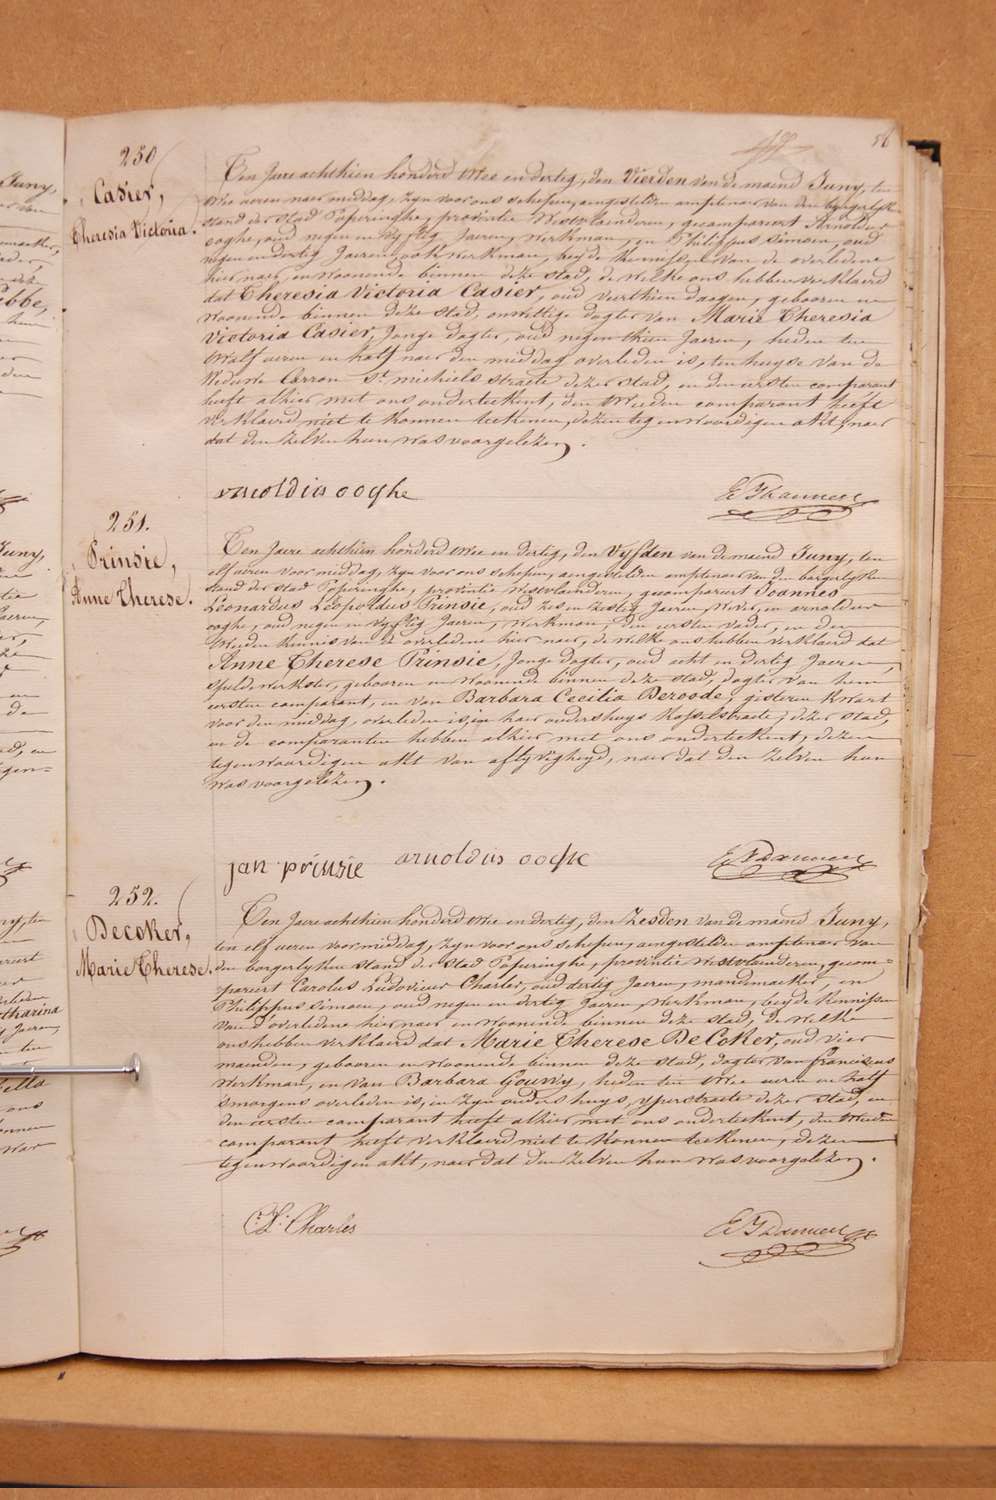 56
250
Casier,
Theresia Victoria.
Ten Jaere achthien honderd twee en dertig, den Vierden van de maend Juny, ten
twee ueren naer middag, zyn voor ons schepen, aengestelden amptenaer van den borgerlyken
stand der stad Poperinghe, provintie Westvlaenderen, gecompareert Arnoldus
ooghe, oud negen en vyftig Jaeren, werkman, en Philippus Simoen, oud
negen en dertig Jaeren, ook werkman, beyde kennissen van de overledene
hier naer, en woonende binnen deze stad, de welke ons hebben verklaerd
dat Theresia Victoria Casier, oud veerthien daegen, gebooren en
woonende binnen deze stad, onwettige dogter van Marie Theresia
Victoria Casier, Jonge dogter, oud negenthien Jaeren, heden ten
twalf ueren en half naer den middag overleden is, ten huyse van de
Weduwe Carron St. michiels straete dezer stad, en den eersten comparant
heeft alhier met ons onderteekent, den tweeden comparant heeft
verklaerd niet te konnen teekenen, dezen tegenwoordigen akt, naer
dat den zelven hun was voorgelezen.
arnoldus ooghe
251.
Prinsie,
Anne Therese.
Ten Jaere achthien honderd twee en dertig, den Vyfden van de maend Juny, ten
elf ueren voor middag, zyn voor ons schepen, aengestelden amptenaer van den borgerlyken
stand der stad Poperinghe, provintie Westvlaenderen, gecompareert Joannes
Leonardus Leopoldus Prinsie, oud zes en zestig Jaeren, wever, en arnoldus
ooghe, oud negen en vyftig Jaeren, werkman, den eersten vader, en den
tweeden kennis van de overledene hier naer, de welke ons hebben verklaerd dat
Anne Therese Prinsie, Jonge dogter, oud acht en dertig Jaeren,
spelde werkster, gebooren en woonende binnen deze stad, dogter van hem
eersten comparant, en van Barbara Cecilia Deroode, gisteren kwart
voor den middag, overleden is, in haer ouders huys Kasselstraete, dezer stad,
en de comparanten hebben alhier met ons onderteekent, dezen
tegenwoordigen akt van aflyvigheyd, naer dat den zelven hun
was voorgelezen.
jan prinsie arnoldus ooghe
252.
Decoker,
Marie Therese.
Ten Jaere achthien honderd twee en dertig, den Zesden van de maend Juny,
ten elf ueren voormiddag, zyn voor ons schepen, aengestelden amptenaer van
den borgerlyken stand der stad Poperinghe, provintie Westvlaenderen, gecom-
pareert Carolus Ludovicus Charles, oud dertig Jaeren, mandemaeker, en
Philippus Simoen, oud negen en dertig Jaeren, werkman, beyde kennissen
van d'overledene hier naer en woonende binnen deze stad, de welke
ons hebben verklaerd dat Marie Therese De Coker, oud vier
maenden, gebooren en woonende binnen deze stad, dogter van franciscus
werkman, en van Barbara Gouwy, heden ten twee ueren en half
smorgens overleden is, in zyn ouders huys, yperstraete dezer stad, en
den eersten comparant heeft alhier met ons onderteekent, den tweeden
comparant heeft verklaerd niet te konnen teekenen, dezen
tegenwoordigen akt, naer dat den zelven hun was voorgelezen.
C. L. Charles